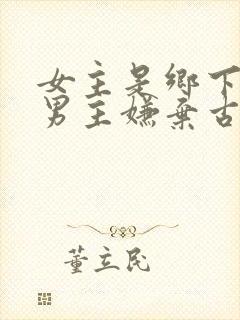 女主是乡下
男主嫌弃古
董立民